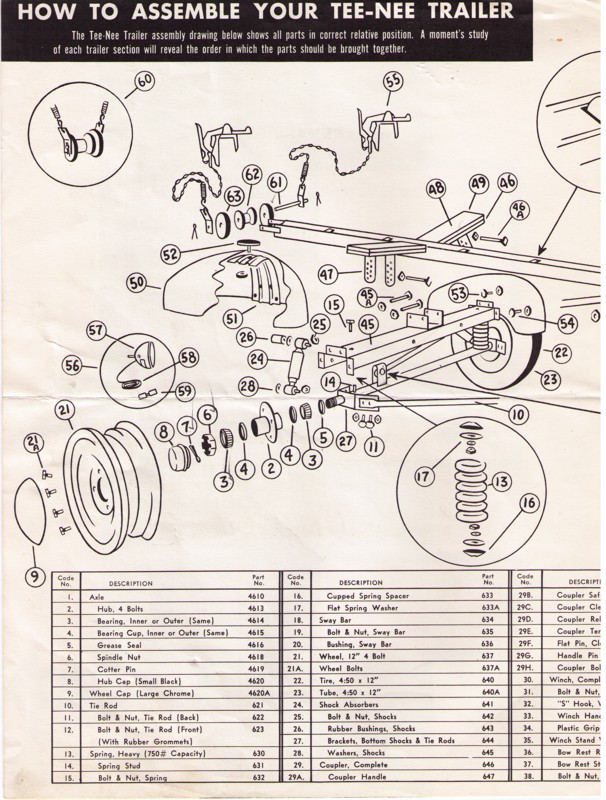 HOW TO ASSEMBLE YOUR TEE-NEE TRAILER
The Tee-Nee Trailer assembly drawing below shows all parts in correct relative position. A moment's study
of each trailer section will reveal the order in which the parts should be brought together.
60
55
63 62 61
48 49 46
46 A
52
50
47
51
45 A
53
54
15 45
25
26
24
57
58
56
59
28
14
22
23
21
10
21 A
8 7 6
3 4 2 4 3 5 27 11
17 13
16
9
Code No. DESCRIPTION Part No. Code No. DESCRIPTION Part No. Code No. DESCRIPTI
1. Axle 4610 16. Cupped Spring Spacer 633 29B. Coupler Saf
2. Hub, 4 Bolts 4613 17. Flat Spring Washer 633A 29C. Coupler Cle
3. Bearing, Inner or Outer (Same) 4614 18. Sway Bar 634 29D. Coupler Rel
4. Bearing Cup, Inner or Outer (Same) 4615 19. Bolt & Nut, Sway Bar 635 29E. Coupler Ten
5. Grease Seal 4616 20. Bushing, Sway Bar 636 29F. Flat Pin, Cl
6. Spindle Nut 4618 21. Wheel, 12" 4 Bolt 637 29G. Handle Pin
7. Cotter Pin 4619 21A. Wheel Bolts 637A 29H. Coupler Bol
8. Hub Cap (Small Black) 4620 22. Tire, 4:50 x 12" 640 30. Winch, Compl
9. Wheel Cap (Large Chrome) 4620A 23. Tube, 4:50 x 12" 640A 31. Bolt & Nut,
10. Tie Rod 621 24. Shock Absorbers 641 32. "S" Hook,
11. Bolt & Nut, Tie Rod (Back) 622 25. Bolt & Nut, Shocks 642 33. Winch Han
12. Bolt & Nut, Tie Rod (Front) 623 26. Rubber Bushings, Shocks 643 34. Plastic Grip
(With Rubber Grommets) 27. Brackets, Bottom Shocks & Tie Rods 644 35. Winch Stand
13. Spring, Heavy (750# Capacity) 630 28. Washers, Shocks 645 36. Bow Rest R
14. Spring Stud 631 29. Coupler, Complete 646 37. Bow Rest St
15. Bolt & Nut, Spring 632 29A. Coupler Handle 647 38. Bolt & Nut,